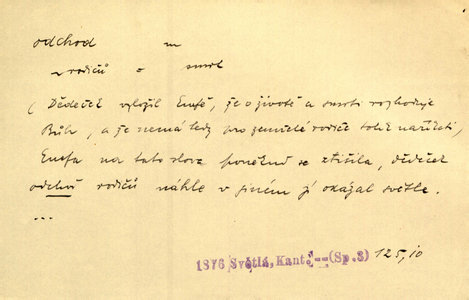 odchod m
~ rodičů = smrt
(Dědeček vyložil Enefě, že o životě a smrti rozhoduje
Bůh, a že nemá tedy pro zemřelé rodiče tolik naříkati,
Enefa na tato slova poněkud se ztišila, dědeček
odchod rodičů náhle v jiném jí ukázal světle.
...
1876 Světlá, Kant. -- (Sp. 3) 125,10